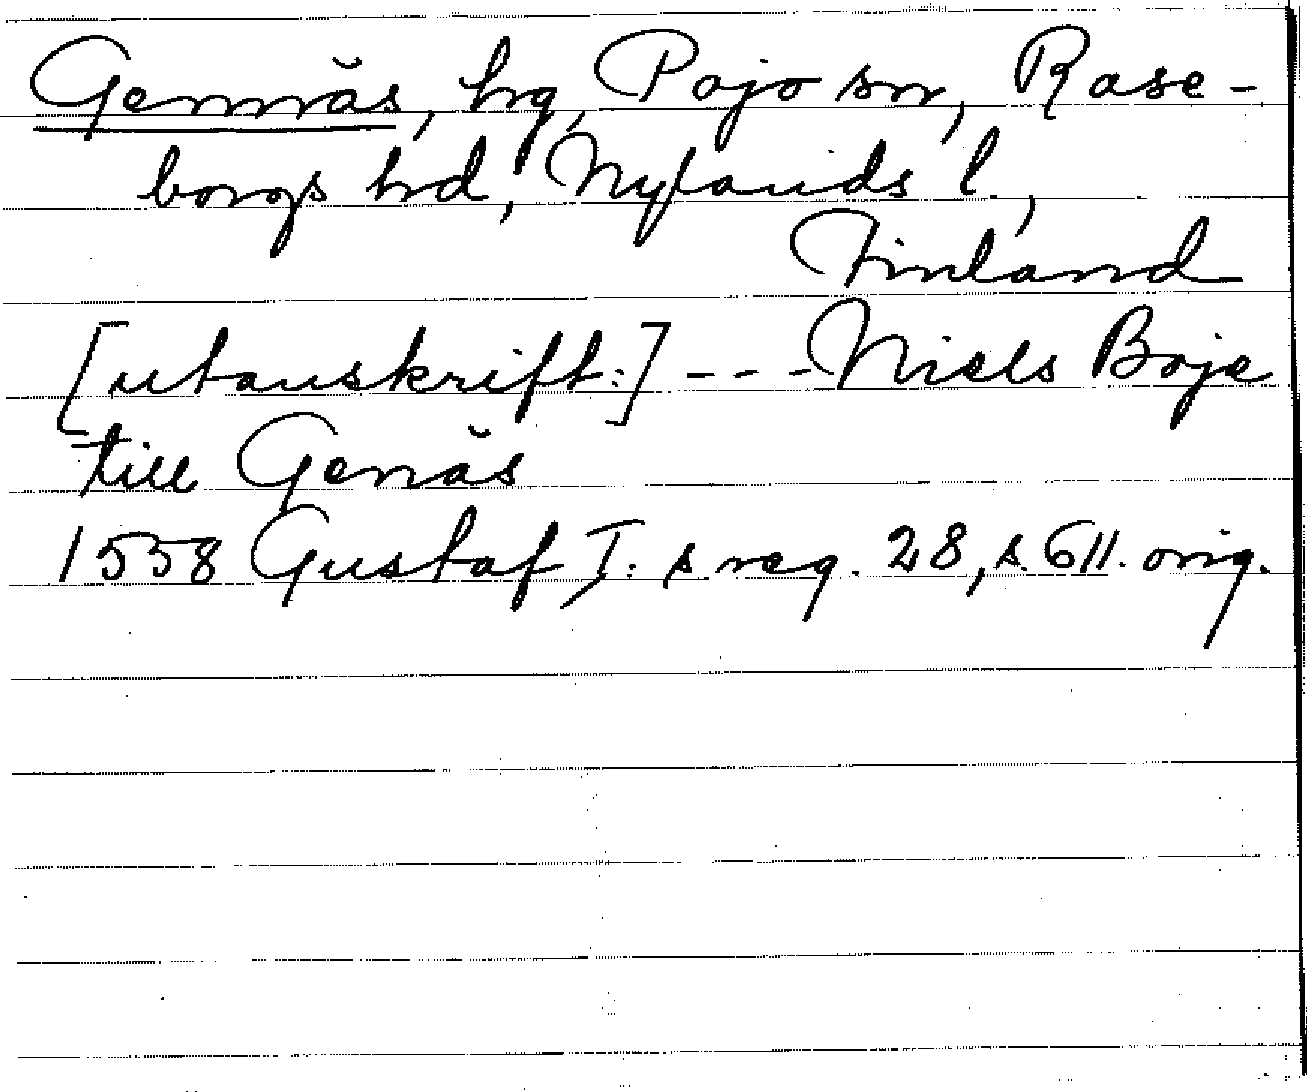 Gennäs, hg, Pojo sn, Rase-
borgs hd, Nylands l.,
Finland
[utanskrift:] - - - Niels Boje
till Genäs
1558 Gustaf I: s reg. 28, s. 611. orig.